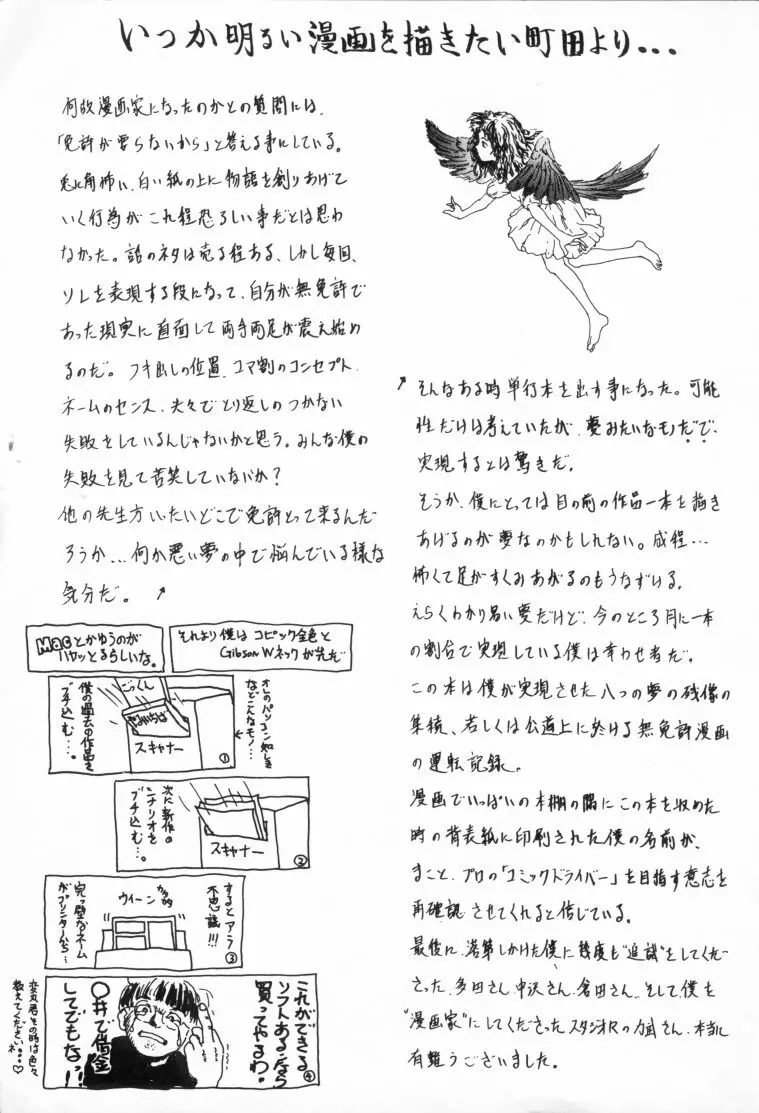 いつか明るい漫画を描きたい町田より...
何故漫画家になったのかとの質問には、
「免許が要らないから」と答える事にしている。
兎に角怖い、白い紙の上に物語を創りあげて
いく行為がこれ程恐ろしい事だとは思わ
なかった。話のネタは売る程ある、しかし毎回、
ソレを表現する段になって、自分が無免許で
あった現実に直面して両手両足が震え始め
るのだ。フキ出しの位置、コマ割のコンセプト、
ネームのセンス、大々でとり返しのつかない
失敗をしているんじゃないかと思う。みんな僕の
失敗を見て苦笑していないか?
他の先生方いったいどこで免許とって来るんだ
ろうか...何か悪い夢の中で悩んでいる様な
気分だ。
そんなある時単行本を出す事になった。可能
性だけは考えていたが、夢みたいなモノだで、
実現するとは驚きだ。
そうか、僕にとっては目の前の作品一本を描き
あげるのが夢なのかもしれない。成程...
怖くて足がすくみあがるのもうなずける。
えらくわかり易い夢だけど、今のところ月に一本
の割合で実現している僕は幸わせ者だ。
この本は僕が実現させた八つの夢の残像の
集積、若しくは公道上に於ける無免許漫画
の運転記録。
漫画でいっぱいの本棚の隅にこの本を収めた
時の背表紙に印刷された僕の名前が、
まこと、プロの「コミックドライバー」を目指す意志を
再確認させてくれると信じている。
最後に、落第しかけた僕に幾度も"追試"をしてくだ
さった、多田さん、中沢さん、倉田さん、そして僕を
"漫画家"にしてくださったスタジオRの力武さん、本当に
有難うございました。
Macとかゆうのが
ハヤッとるらしいな。
それより僕はコピック金色と
Gibson Wネックが先だ
オレのパソコン知しき
などこんなモノ...
僕の過去の作品を
ブチ込む...。
ごっくん
スキャナー
①
次に新作の
シナリオを
ブチ込む...。
スキャナー
②
するとアラ
不思議!!!
ウィーン
完っ璧なネーム
がプリンターから...
③
これができる
ソフトあるなら
買ってやるわ。
〇井で借金
してでもなっ!!
④
その時は色々
教えてくださいネ...♡